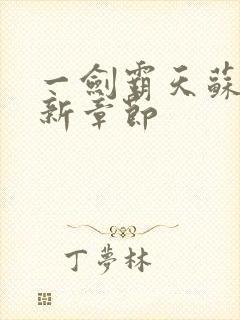 一劍霸天蘇
新章節
丁夢林